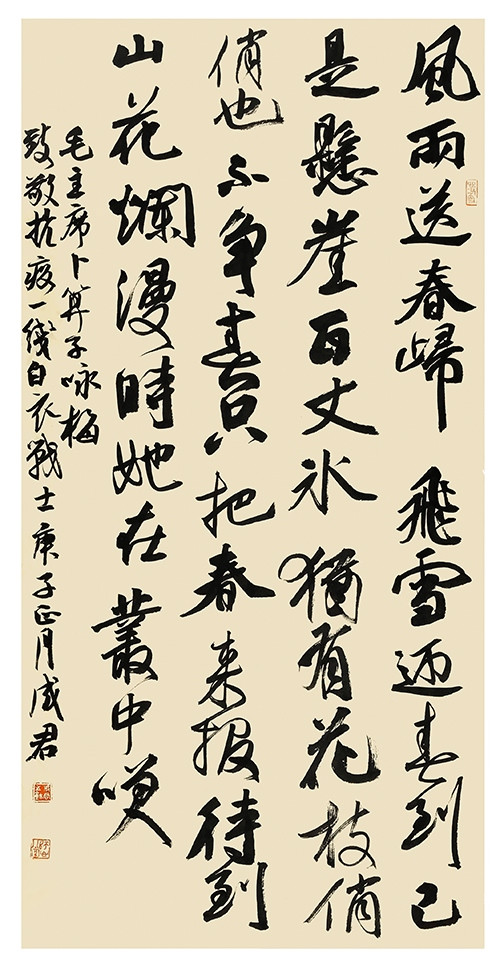 風雨送春歸飛雪迎春到已
是懸崖百丈冰猶有花枝俏
俏也不争春只把春来报待到
山花爛漫時她在叢中咲
毛主席卜算子咏梅
致敬抗疫一綫白衣戰士庚子正月成君